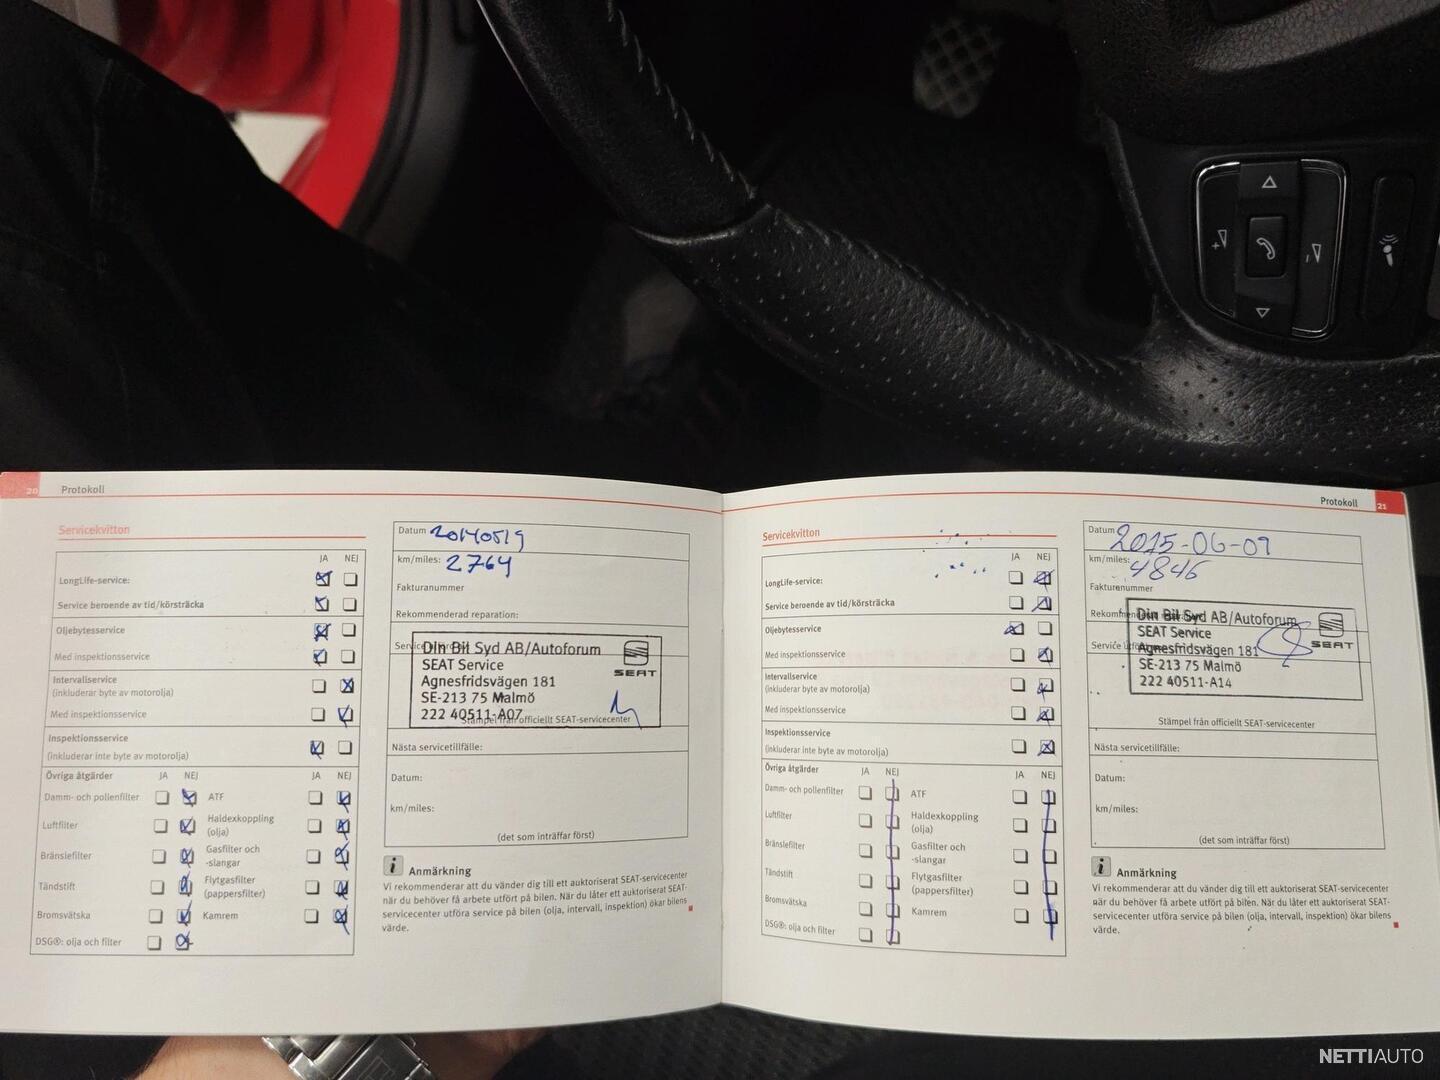 20 Protokoll
Servicekvitton
JA NEJ
LongLife-service:
Service beroende av tid/körsträcka
Oljebytesservice
Med inspektionsservice
Intervallservice
(inkluderar byte av motorolja)
Med inspektionsservice
Inspektionsservice
(inkluderar inte byte av motorolja)
Övriga åtgärder JA NEJ JA NEJ
Damm- och pollenfilter ATF
Luftfilter Haldexkoppling
(olja)
Bränslefilter Gasfilter och
-slangar
Tändstift Flytgasfilter
(pappersfilter)
Bromsvätska Kamrem
DSG®: olja och filter
Datum 20140519
km/miles: 2764
Fakturanummer
Rekommenderad reparation:
Din Bil Syd AB/Autoforum
SEAT Service
Agnesfridsvägen 181
SE-213 75 Malmö
222 40511-A07
SEAT
Stämpel från officiellt SEAT-servicecenter
Nästa servicetillfälle:
Datum:
km/miles:
(det som inträffar först)
i Anmärkning
Vi rekommenderar att du vänder dig till ett auktoriserat SEAT-servicecenter
när du behöver få arbete utfört på bilen. När du låter ett auktoriserat SEAT-
servicecenter utföra service på bilen (olja, intervall, inspektion) ökar bilens
värde.
Protokoll 21
Servicekvitton
JA NEJ
LongLife-service:
Service beroende av tid/körsträcka
Oljebytesservice
Med inspektionsservice
Intervallservice
(inkluderar byte av motorolja)
Med inspektionsservice
Inspektionsservice
(inkluderar inte byte av motorolja)
Övriga åtgärder JA NEJ JA NEJ
Damm- och pollenfilter ATF
Luftfilter Haldexkoppling
(olja)
Bränslefilter Gasfilter och
-slangar
Tändstift Flytgasfilter
(pappersfilter)
Bromsvätska Kamrem
DSG®: olja och filter
Datum 2015-06-09
km/miles: 4846
Fakturanummer
Din Bil Syd AB/Autoforum
SEAT Service
Agnesfridsvägen 181
SE-213 75 Malmö
222 40511-A14
SEAT
Stämpel från officiellt SEAT-servicecenter
Nästa servicetillfälle:
Datum:
km/miles:
(det som inträffar först)
i Anmärkning
Vi rekommenderar att du vänder dig till ett auktoriserat SEAT-servicecenter
när du behöver få arbete utfört på bilen. När du låter ett auktoriserat SEAT-
servicecenter utföra service på bilen (olja, intervall, inspektion) ökar bilens
värde.
NETTIAUTO